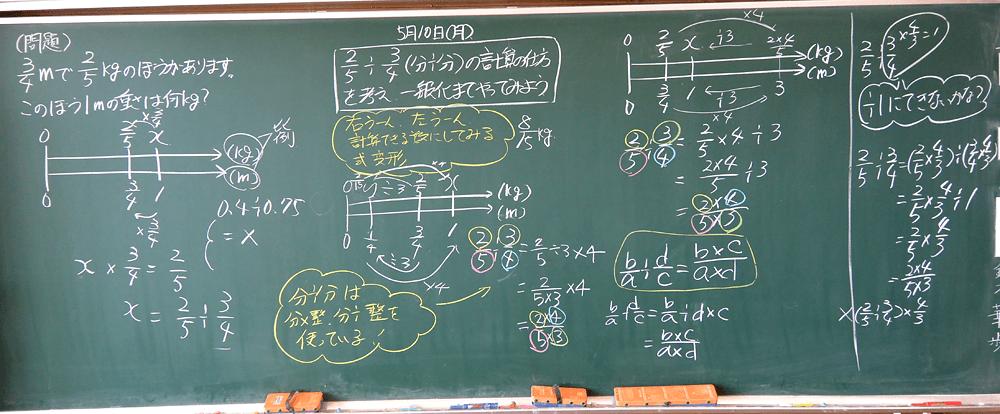 (問題)
3/4 mで 2/5 kgのぼうがあります。
このぼう1mの重さは何kg?
×3/4
0 2/5 x (kg) 比例
0 3/4 1 (m)
×3/4
0.4÷0.75
= x
x × 3/4 = 2/5
x = 2/5 ÷ 3/4
5月10日(月)
2/5 ÷ 3/4 (分÷分)の計算の仕方
を考え、一般化までやってみよう
右うーん、左うーん
計算できる数にしてみる
式変形
8/15 kg.
÷3 ×4
0 y 2/5 x (kg)
0 1/4 3/4 1 (m)
÷3 ×4
2/5 ÷ 3/4 = 2/5 ÷ 3 × 4
= 2/(5×3) × 4
= (2×4)/(5×3)
分÷分は
分×整、分÷整を
使っている!
×4
0 2/5 x ÷3 (2×4)/5 (kg)
0 3/4 1 ÷3 3 (m)
×4
2/5 ÷ 3/4 = 2/5 × 4 ÷ 3
= (2×4)/5 ÷ 3
= (2×4)/(5×3)
b/a ÷ d/c = (b×c)/(a×d)
b/a ÷ d/c = b/a ÷ d × c
= (b×c)/(a×d)
2/5 ÷ 3/4 × 4/3 = 1
÷1にできないかな?
2/5 ÷ 3/4 = (2/5 × 4/3) ÷ (3/4 × 4/3)
= 2/5 × 4/3 ÷ 1
= 2/5 × 4/3
= (2×4)/(5×3)
× (2/5 ÷ 3/4) × 4/3